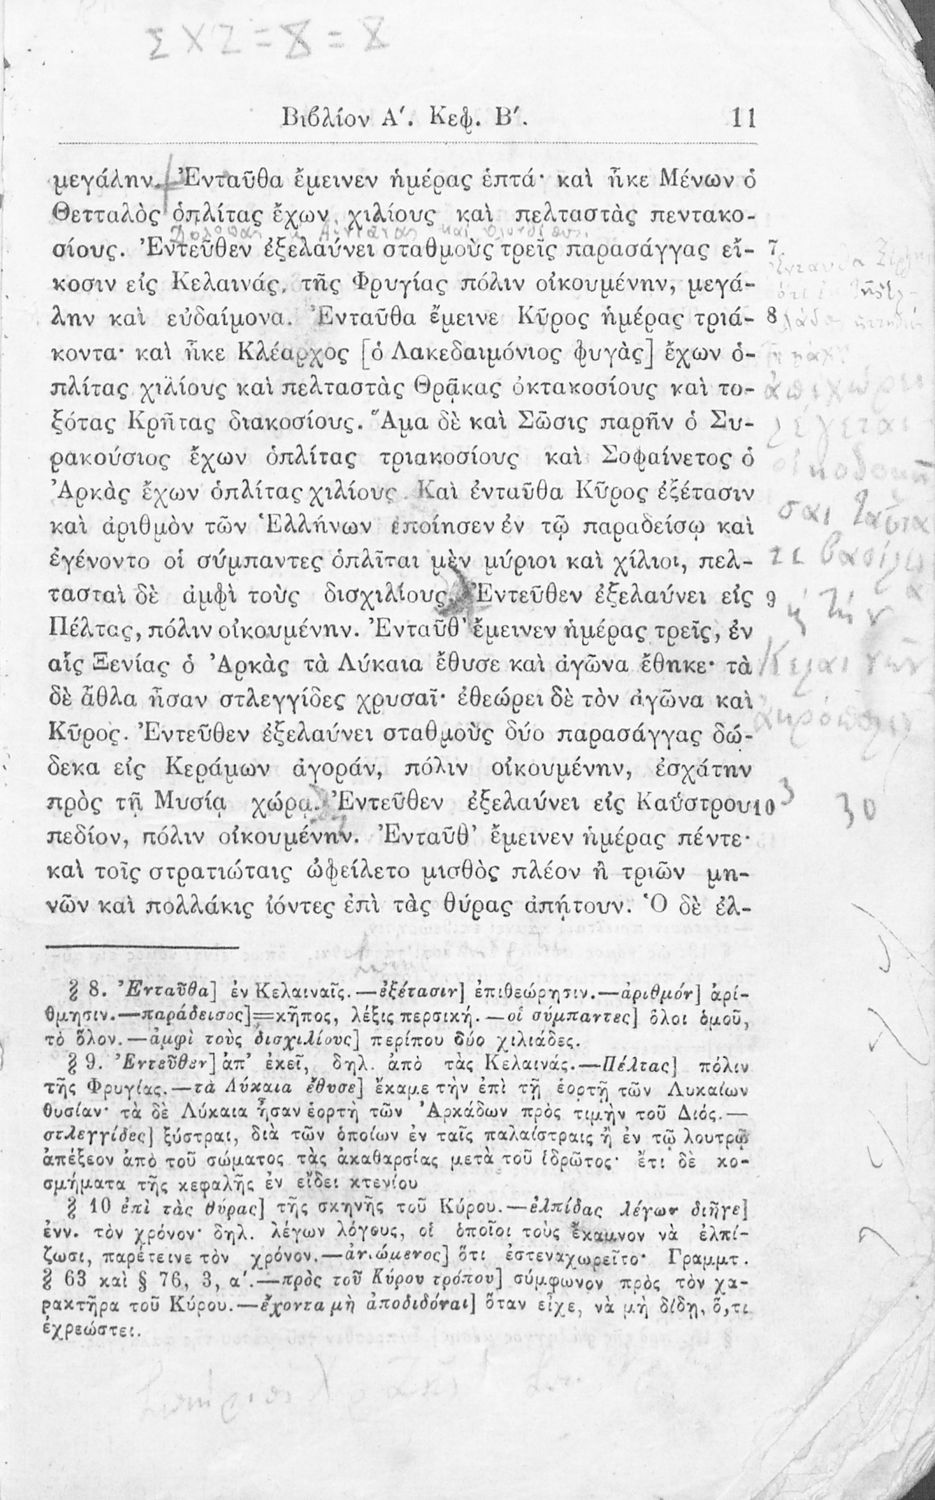 Σ Χ Ζ = 8 = 8
Βιβλίον Α′. Κεφ. Β′. 11
μεγάλην. Ἐνταῦθα ἔμεινεν ἡμέρας ἑπτά· καὶ ἧκε Μένων ὁ
Θετταλὸς ὁπλίτας ἔχων χιλίους καὶ πελταστὰς πεντακο-
Δόλοπας καὶ Αἰνιᾶνας καὶ Ὀλυνθίους
σίους. Ἐντεῦθεν ἐξελαύνει σταθμοὺς τρεῖς παρασάγγας εἴ- 7
κοσιν εἰς Κελαινάς, τῆς Φρυγίας πόλιν οἰκουμένην, μεγά-
λην καὶ εὐδαίμονα. Ἐνταῦθα ἔμεινε Κῦρος ἡμέρας τριά- 8
κοντα· καὶ ἧκε Κλέαρχος [ὁ Λακεδαιμόνιος φυγὰς] ἔχων ὁ-
πλίτας χιλίους καὶ πελταστὰς Θρᾷκας ὀκτακοσίους καὶ το-
ξότας Κρῆτας διακοσίους. Ἅμα δὲ καὶ Σῶσις παρῆν ὁ Συ-
ρακούσιος ἔχων ὁπλίτας τριακοσίους καὶ Σοφαίνετος ὁ
Ἀρκὰς ἔχων ὁπλίτας χιλίους. Καὶ ἐνταῦθα Κῦρος ἐξέτασιν
καὶ ἀριθμὸν τῶν Ἑλλήνων ἐποίησεν ἐν τῷ παραδείσῳ καὶ
ἐγένοντο οἱ σύμπαντες ὁπλῖται μὲν μύριοι καὶ χίλιοι, πελ-
τασταὶ δὲ ἀμφὶ τοὺς δισχιλίους. Ἐντεῦθεν ἐξελαύνει εἰς 9
Πέλτας, πόλιν οἰκουμένην. Ἐνταῦθ’ ἔμεινεν ἡμέρας τρεῖς, ἐν
αἷς Ξενίας ὁ Ἀρκὰς τὰ Λύκαια ἔθυσε καὶ ἀγῶνα ἔθηκε· τὰ
δὲ ἆθλα ἦσαν στλεγγίδες χρυσαῖ· ἐθεώρει δὲ τὸν ἀγῶνα καὶ
Κῦρος. Ἐντεῦθεν ἐξελαύνει σταθμοὺς δύο παρασάγγας δώ-
δεκα εἰς Κεράμων ἀγοράν, πόλιν οἰκουμένην, ἐσχάτην
πρὸς τῇ Μυσίᾳ χώρᾳ. Ἐντεῦθεν ἐξελαύνει εἰς Καΰστρου 10
πεδίον, πόλιν οἰκουμένην. Ἐνταῦθ’ ἔμεινεν ἡμέρας πέντε·
καὶ τοῖς στρατιώταις ὠφείλετο μισθὸς πλέον ἢ τριῶν μη-
νῶν καὶ πολλάκις ἰόντες ἐπὶ τὰς θύρας ἀπῄτουν. Ὁ δὲ ἐλ-
ἐνταῦθα Ξέρξης
ὅτε
τῆς Ἑλ-
λάδος
τῇ μάχῃ
ἀπεχώρει
λέγεται
οἰκοδομῆ
σαι ταῦτα
τε βασίλεια
καὶ τὴν
Κελαινῶν
ἀκρόπολιν
3 30
§ 8. Ἐνταῦθα] ἐν Κελαιναῖς.—ἐξέτασιν] ἐπιθεώρησιν.—ἀριθμόν] ἀρί-
θμησιν.—παράδεισος]=κῆπος, λέξις περσική.—οἱ σύμπαντες] ὅλοι ὁμοῦ,
τὸ ὅλον.—ἀμφὶ τοὺς δισχιλίους] περίπου δύο χιλιάδες.
§ 9. Ἐντεῦθεν] ἀπ’ ἐκεῖ, δηλ. ἀπὸ τὰς Κελαινάς.—Πέλτας] πόλιν
τῆς Φρυγίας.—τὰ Λύκαια ἔθυσε] ἔκαμε τὴν ἐπὶ τῇ ἑορτῇ τῶν Λυκαίων
θυσίαν· τὰ δὲ Λύκαια ἦσαν ἑορτὴ τῶν Ἀρκάδων πρὸς τιμὴν τοῦ Διός.—
στλεγγίδες] ξύστραι, διὰ τῶν ὁποίων ἐν ταῖς παλαίστραις ἢ ἐν τῷ λουτρῷ
ἀπέξεον ἀπὸ τοῦ σώματος τὰς ἀκαθαρσίας μετὰ τοῦ ἱδρῶτος· ἔτι δὲ κο-
σμήματα τῆς κεφαλῆς ἐν εἴδει κτενίου
§ 10 ἐπὶ τὰς θύρας] τῆς σκηνῆς τοῦ Κύρου.—ἐλπίδας λέγων διῆγε]
ἐνν. τὸν χρόνον· δηλ. λέγων λόγους, οἱ ὁποῖοι τοὺς ἔκαμνον νὰ ἐλπί-
ζωσι, παρέτεινε τὸν χρόνον.—ἀνιώμενος] ὅτι ἐστεναχωρεῖτο· Γραμμτ.
§ 63 καὶ § 76, 3, α′.—πρὸς τοῦ Κύρου τρόπου] σύμφωνον πρὸς τὸν χα-
ρακτῆρα τοῦ Κύρου.—ἔχοντα μὴ ἀποδιδόναι] ὅταν εἶχε, νὰ μὴ δίδῃ, ὅ,τι
ἐχρεώστει.